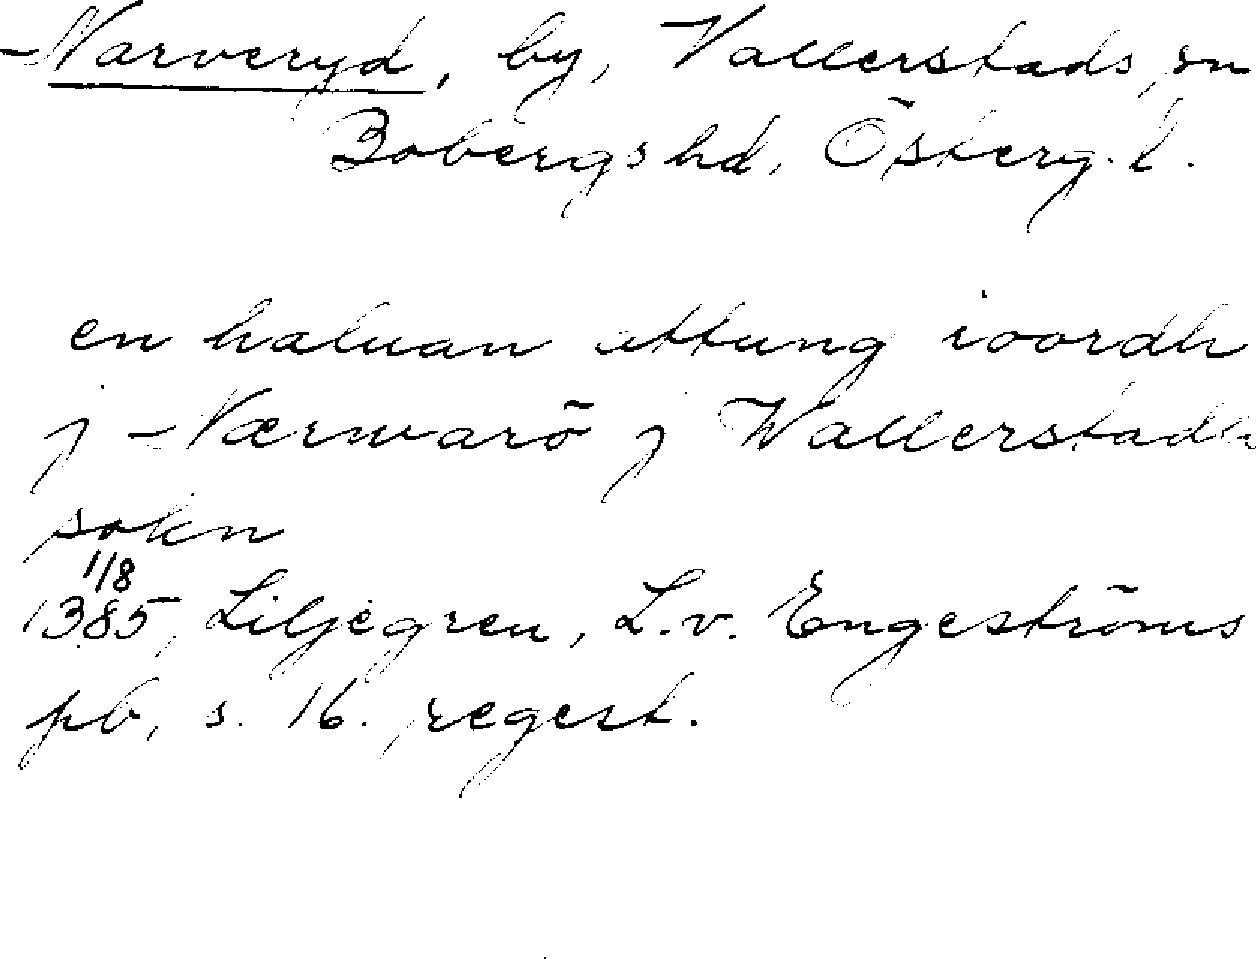 Narveryd, by, Vallerstads sn
Bobergs hd, Österg. l.
en haluan attung ioordh
j Nærwarö j Wallerstadh
sokn
1/8
1385, Liljegren, L. v. Engeströms
pb, s. 16. regest.